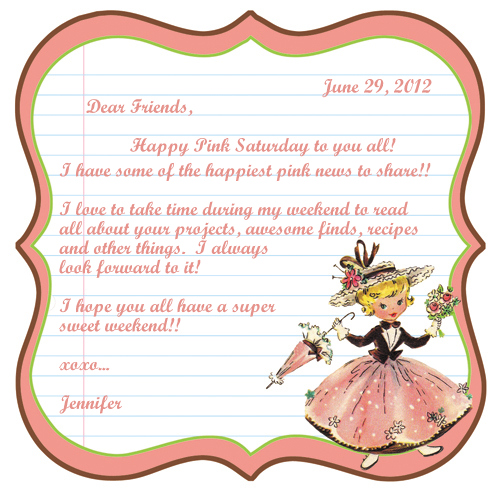 June 29, 2012
Dear Friends,
Happy Pink Saturday to you all!
I have some of the happiest pink news to share!!
I love to take time during my weekend to read
all about your projects, awesome finds, recipes
and other things.  I always
look forward to it!
I hope you all have a super
sweet weekend!!
xoxo...
Jennifer